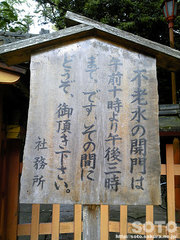 不老水の開門は
午前十時より午後三時
まで、です。その間に
どうぞ、御頂き下さい。
社務所
SOTO